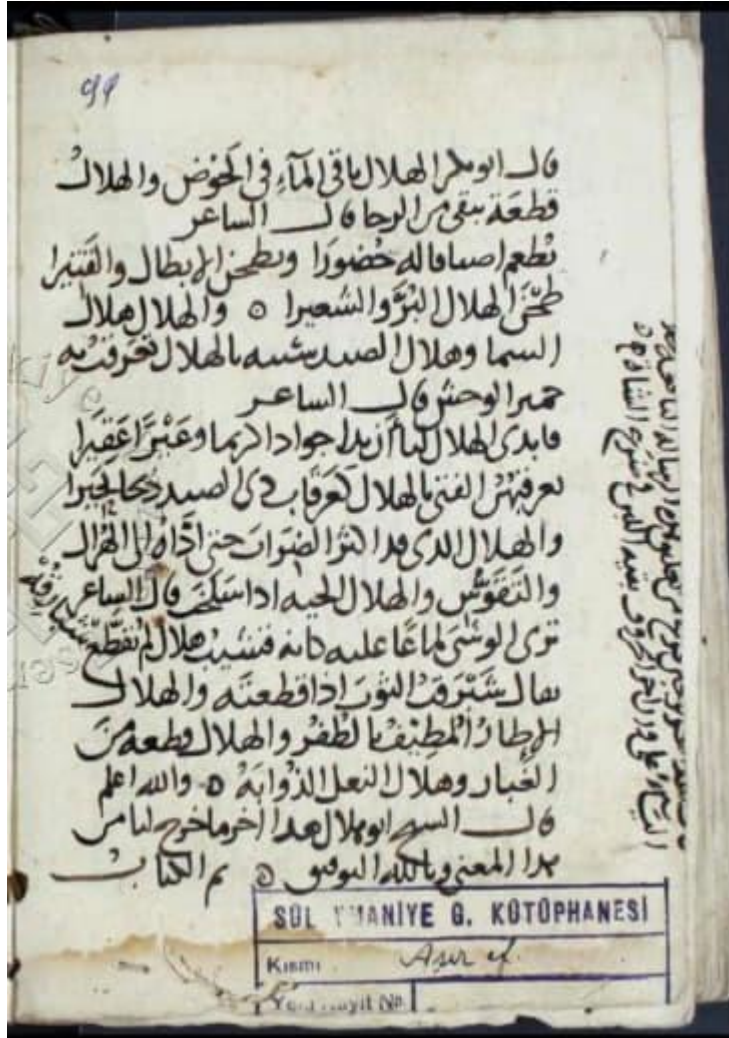 99
قال ابو بكر الهلال باقي المآء في الحَوْض والهلال
قطعَة تبقى من الرحا قال الساعر
تُطعم اصيافا له حُضورَا وتطحن الابطال والقَتيرا
طَحْنَ الهلال البُرَّ والشعيرا ٥ والهلال هلال
السما وهلال الصيد شبيه بالهلال تعرقب به
حمير الوحش قال الساعر
فابدى الهلال لنا جوادا كريما وعَيْرًا عَقيرا
الفتى بالهلال كعرقاب ذي الصيد
والهلال الذى قد اكثر الضِرَابَ حتى ادَّاه الى الهُزال
والتَقَوّس والهلال الحيه اذا سَلخَتْ قال الساعر
ترى الوشىَ لماعًا عليه كانه قشيبُ هلال لم تقطَّع شبارقُهْ
يقال شَبْرَقتُ الثوبَ اذا قطعتَه والهلال
الإطارُ المُطِيْفُ بالظُفر والهلال قطعة من
الغبار وهلال النعل الذُؤابَهُ ٥ والله اعلم
قال السيخ ابو هلال هدا آخر ما خرج لنا من
هدا المعنى وبالله التوفيق ٥ تم الكتابُ
SÜL YMANİYE G. KÜTÜPHANESİ
Kısmı Aşir ef.
Yeni Kayıt No.